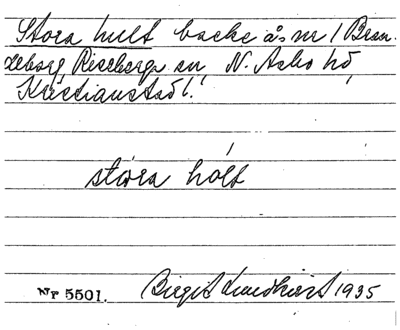 Stora hult backe å nr 1 Bran-
deborg Riseberga sn, N. Åsbo hd
Kristianstads l.
stóra hólt
Nr 5501. Birgit Lundkvist 1935